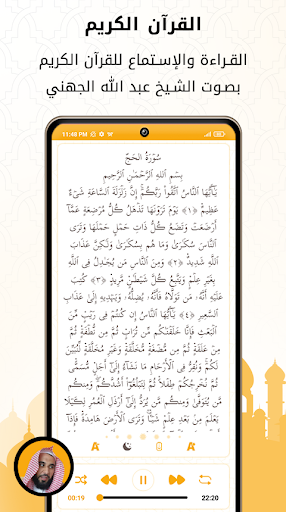 القرآن الكريم
القراءة والإستماع للقرآن الكريم
بصوت الشيخ عبد الله الجهني
11:48 PM
سُورَةُ الحَجِّ
بِسْمِ اللَّهِ الرَّحْمَٰنِ الرَّحِيمِ
يَٰٓأَيُّهَا النَّاسُ اتَّقُوا۟ رَبَّكُمْ إِنَّ زَلْزَلَةَ السَّاعَةِ شَىْءٌ
عَظِيمٌ ﴿١﴾ يَوْمَ تَرَوْنَهَا تَذْهَلُ كُلُّ مُرْضِعَةٍ عَمَّآ
أَرْضَعَتْ وَتَضَعُ كُلُّ ذَاتِ حَمْلٍ حَمْلَهَا وَتَرَى
النَّاسَ سُكَٰرَىٰ وَمَا هُم بِسُكَٰرَىٰ وَلَٰكِنَّ عَذَابَ
اللَّهِ شَدِيدٌ ﴿٢﴾ وَمِنَ النَّاسِ مَن يُجَٰدِلُ فِى اللَّهِ
بِغَيْرِ عِلْمٍ وَيَتَّبِعُ كُلَّ شَيْطَٰنٍ مَّرِيدٍ ﴿٣﴾ كُتِبَ
عَلَيْهِ أَنَّهُۥ مَن تَوَلَّاهُ فَأَنَّهُۥ يُضِلُّهُۥ وَيَهْدِيهِ إِلَىٰ عَذَابِ
السَّعِيرِ ﴿٤﴾ يَٰٓأَيُّهَا النَّاسُ إِن كُنتُمْ فِى رَيْبٍ مِّنَ
الْبَعْثِ فَإِنَّا خَلَقْنَٰكُم مِّن تُرَابٍ ثُمَّ مِن نُّطْفَةٍ ثُمَّ
مِنْ عَلَقَةٍ ثُمَّ مِن مُّضْغَةٍ مُّخَلَّقَةٍ وَغَيْرِ مُخَلَّقَةٍ لِّنُبَيِّنَ
لَكُمْ وَنُقِرُّ فِى الْأَرْحَامِ مَا نَشَآءُ إِلَىٰٓ أَجَلٍ مُّسَمًّى
ثُمَّ نُخْرِجُكُمْ طِفْلًا ثُمَّ لِتَبْلُغُوٓا۟ أَشُدَّكُمْ وَمِنكُم
مَّن يُتَوَفَّىٰ وَمِنكُم مَّن يُرَدُّ إِلَىٰٓ أَرْذَلِ الْعُمُرِ لِكَيْلَا
يَعْلَمَ مِنۢ بَعْدِ عِلْمٍ شَيْـًٔا وَتَرَى الْأَرْضَ هَامِدَةً فَإِذَآ
00:19 22:20